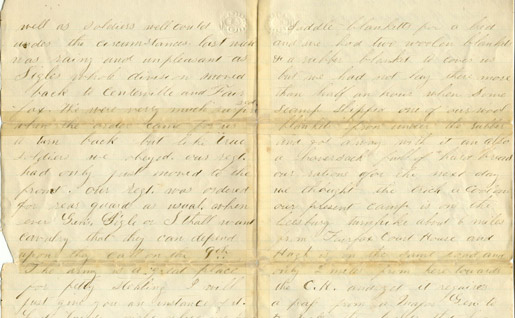 well as soldiers well could
under the circumstances last night
was rainy and unpleasant as
Sigles whole division moved
back to Centerville and Fair
fax We were very much surprised
when the order came for us
to turn back but like true
soldiers we obeyed our regt
had only just moved to the
front. Our Regt was ordered
for rear guard as usual when
ever Gen. Sigle or Stahl want
cavalry that they can depend
upon they call on the 9th
The army is a great place
for petty stealing I will
just give you an instance of it
saddle blanketts for a bed
and we had two woolen blankets
& a rubber blanket to cover us
but we had not lay there more
than half an hour when some
scamp slipped one of our wool
blankets from under the rubber
and got away with it an also
a haversack full of hard bread
our rations for the next day
we thought the trick a
our present camp is on the
Leesburg turnpike about 6 miles
from Fairfax Court House and
Hugh is on the same road and
only 2 miles from here towards
the C.H. and yet it requires
a pass from a Major Gen to